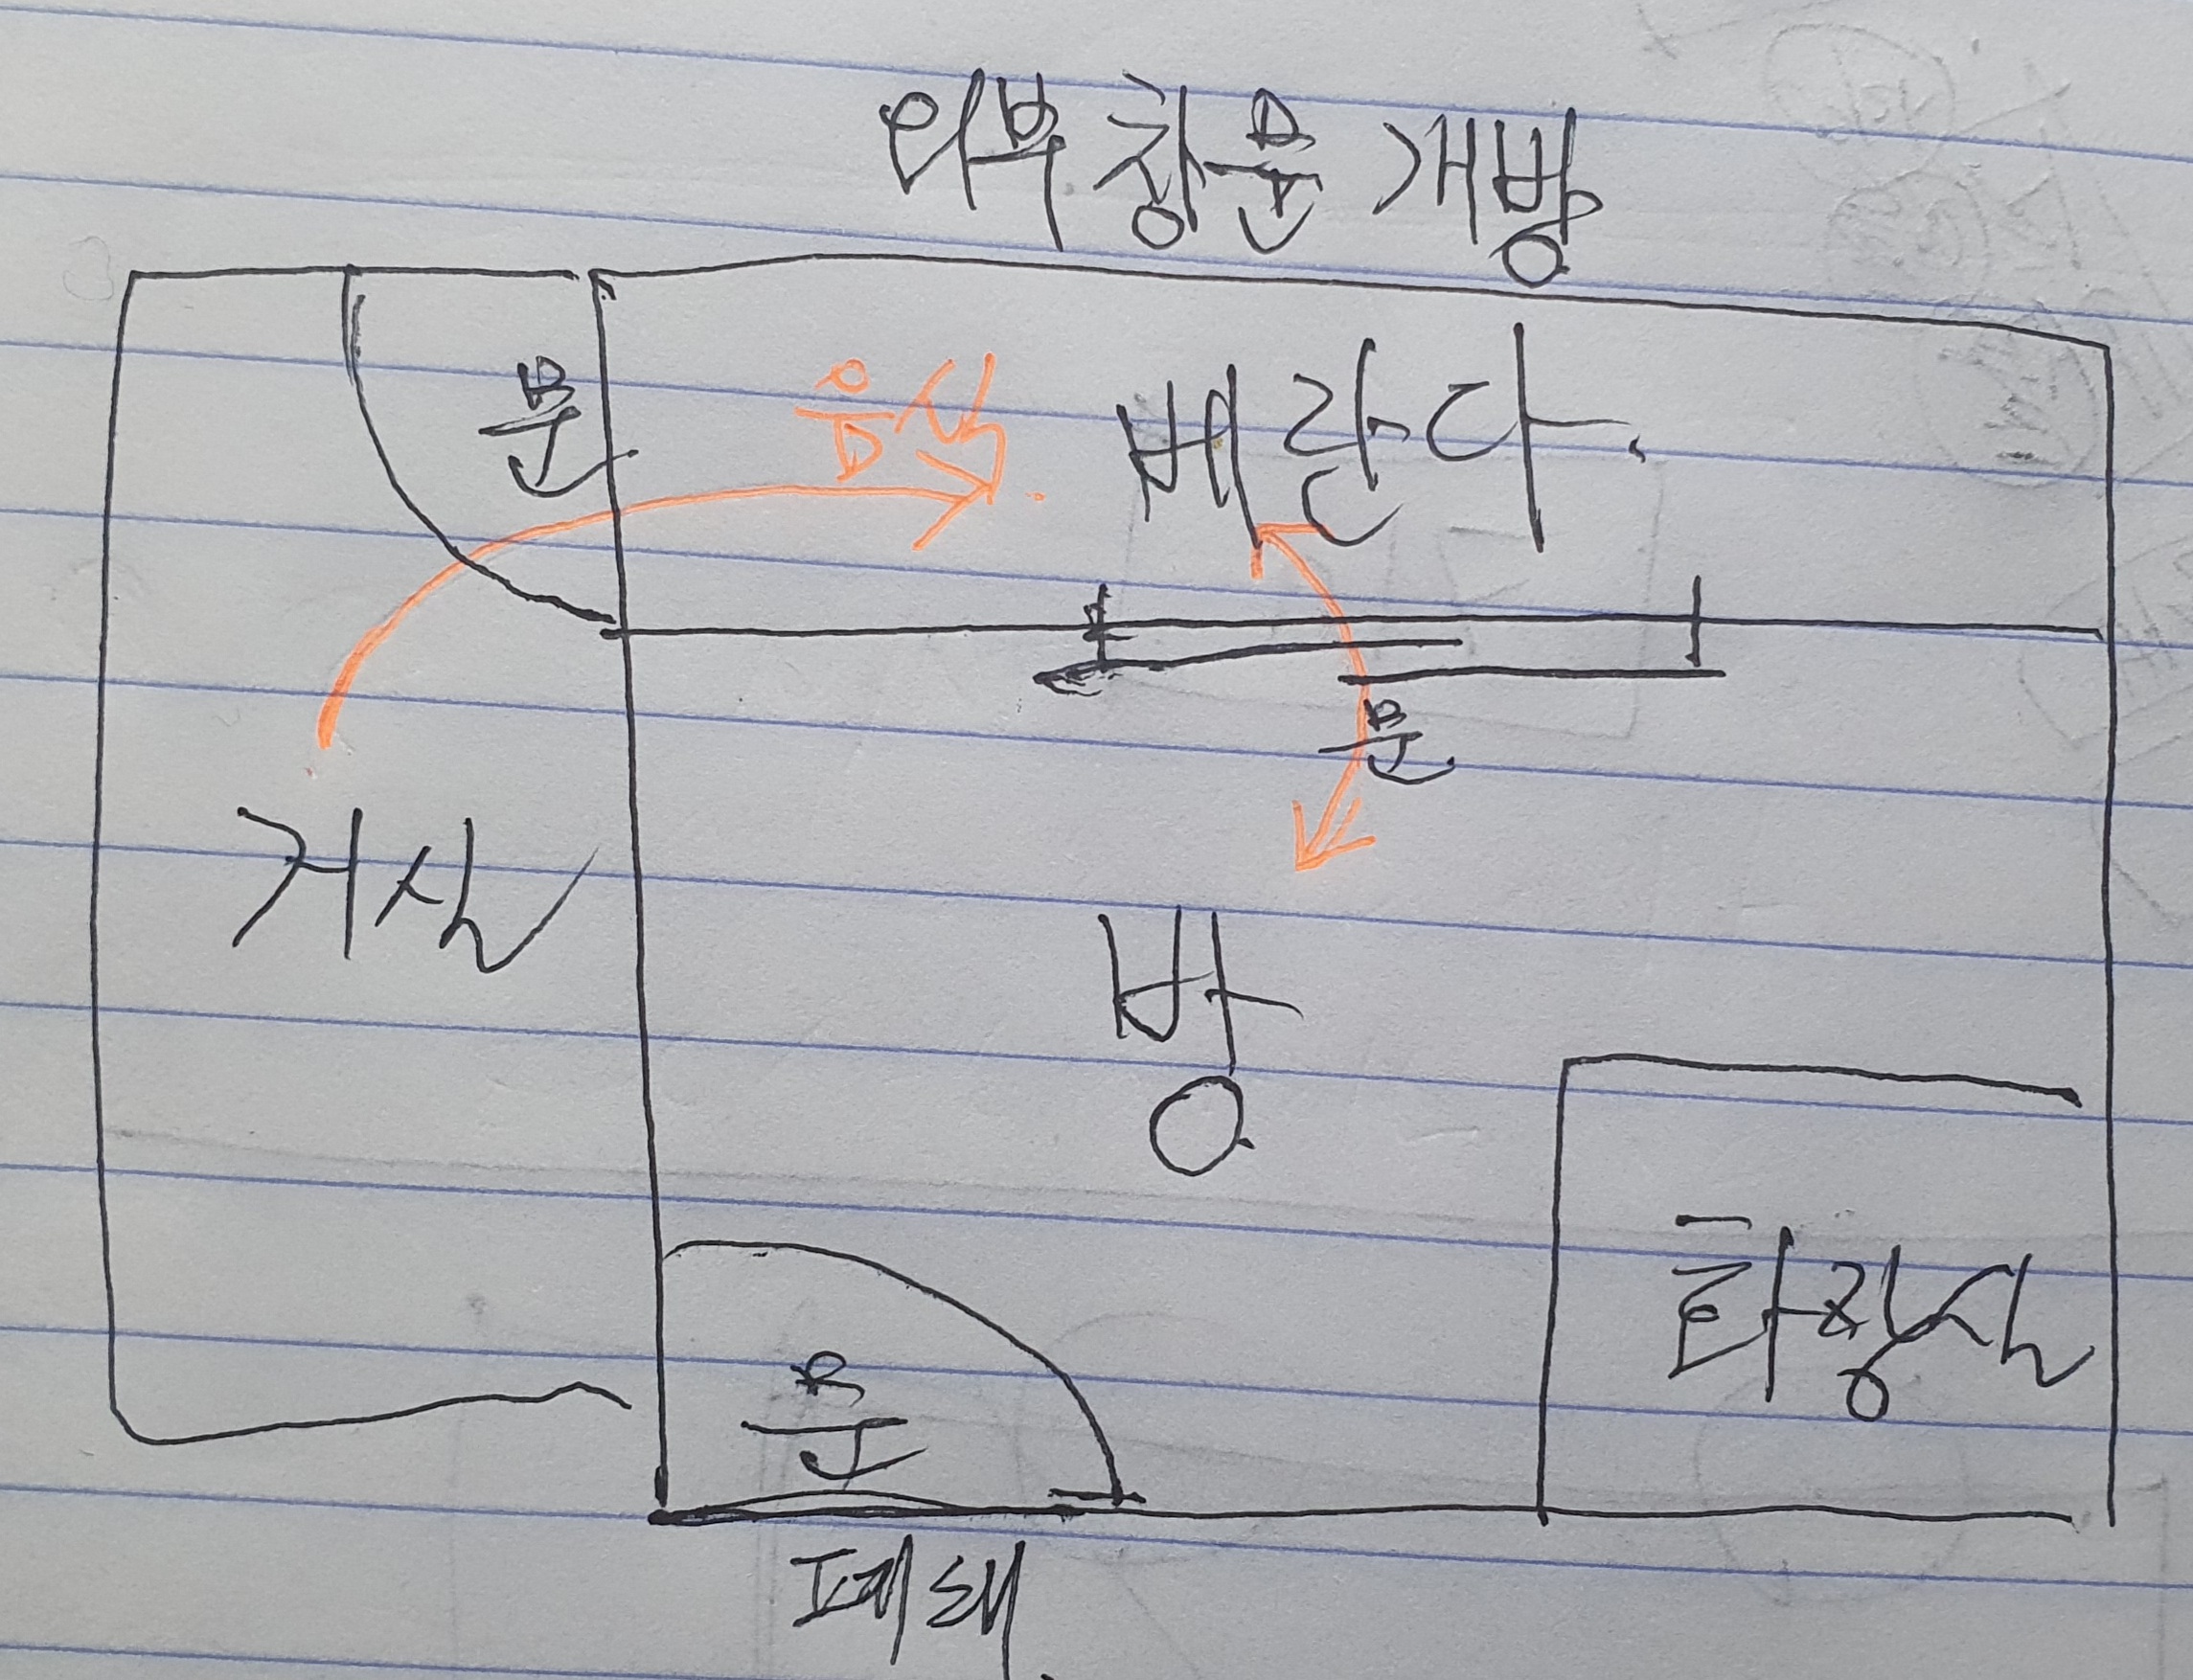 외부 창문 개방
문
음식
베란다.
문
거실
방
화장실
문
폐쇄.